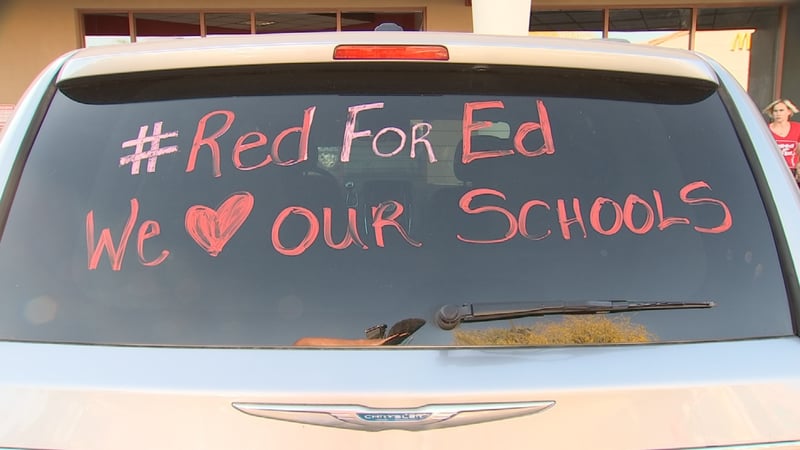 #Red For Ed
We ❤ OUR SChOOLS
CHRYSLER